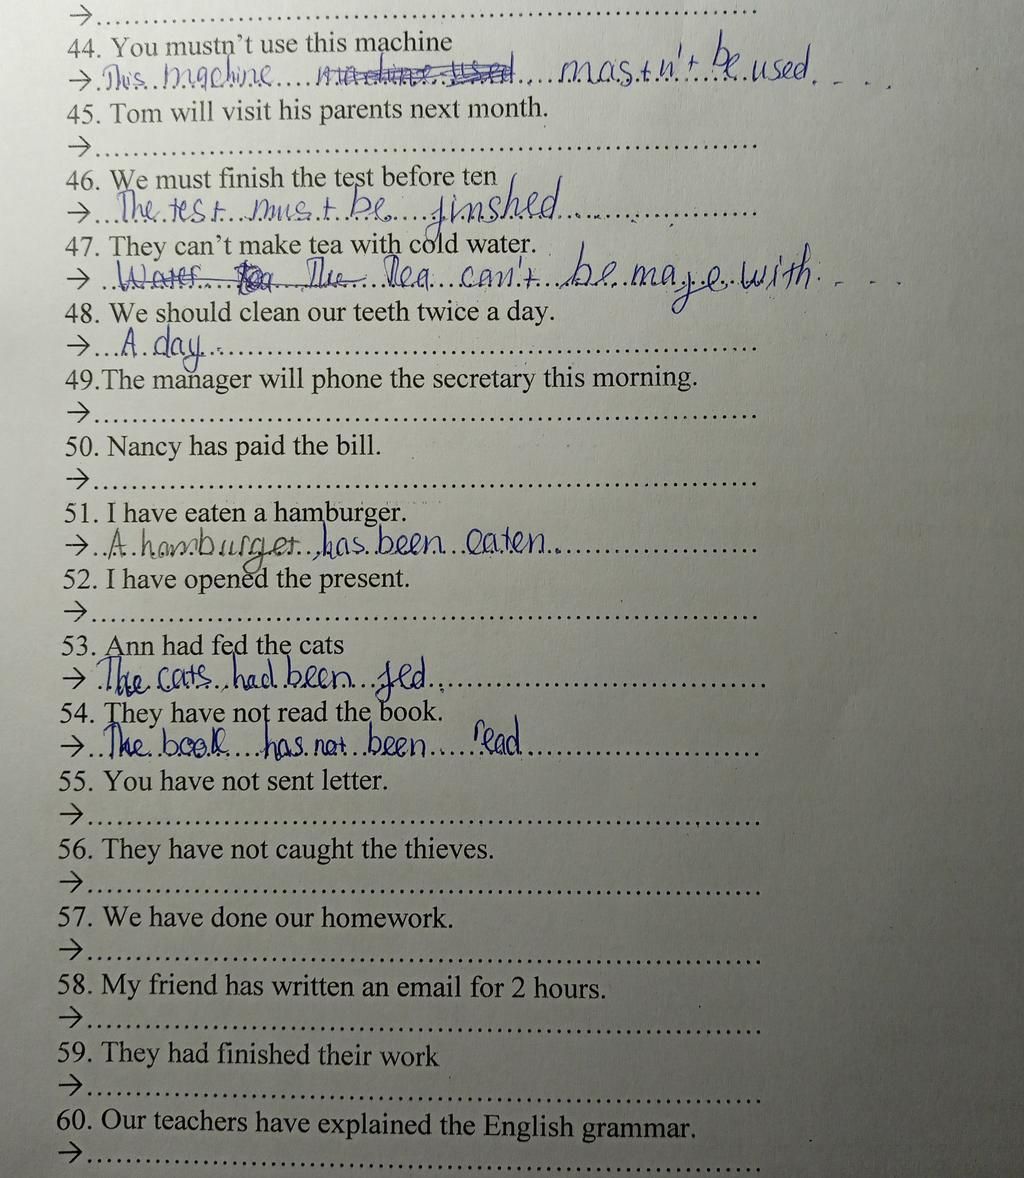 →............................................................
44. You mustn't use this machine
→ This machine mastn't be used.
45. Tom will visit his parents next month.
→............................................................
46. We must finish the test before ten
→ The test must be finshed
47. They can't make tea with cold water.
→ Water tea The Tea can't be maye with
48. We should clean our teeth twice a day.
→ A day
49.The manager will phone the secretary this morning.
→............................................................
50. Nancy has paid the bill.
→............................................................
51. I have eaten a hamburger.
→ A hamburger has been eaten
52. I have opened the present.
→............................................................
53. Ann had fed the cats
→ The cats had been fed
54. They have not read the book.
→ The book has not been read
55. You have not sent letter.
→............................................................
56. They have not caught the thieves.
→............................................................
57. We have done our homework.
→............................................................
58. My friend has written an email for 2 hours.
→............................................................
59. They had finished their work
→............................................................
60. Our teachers have explained the English grammar.
→............................................................